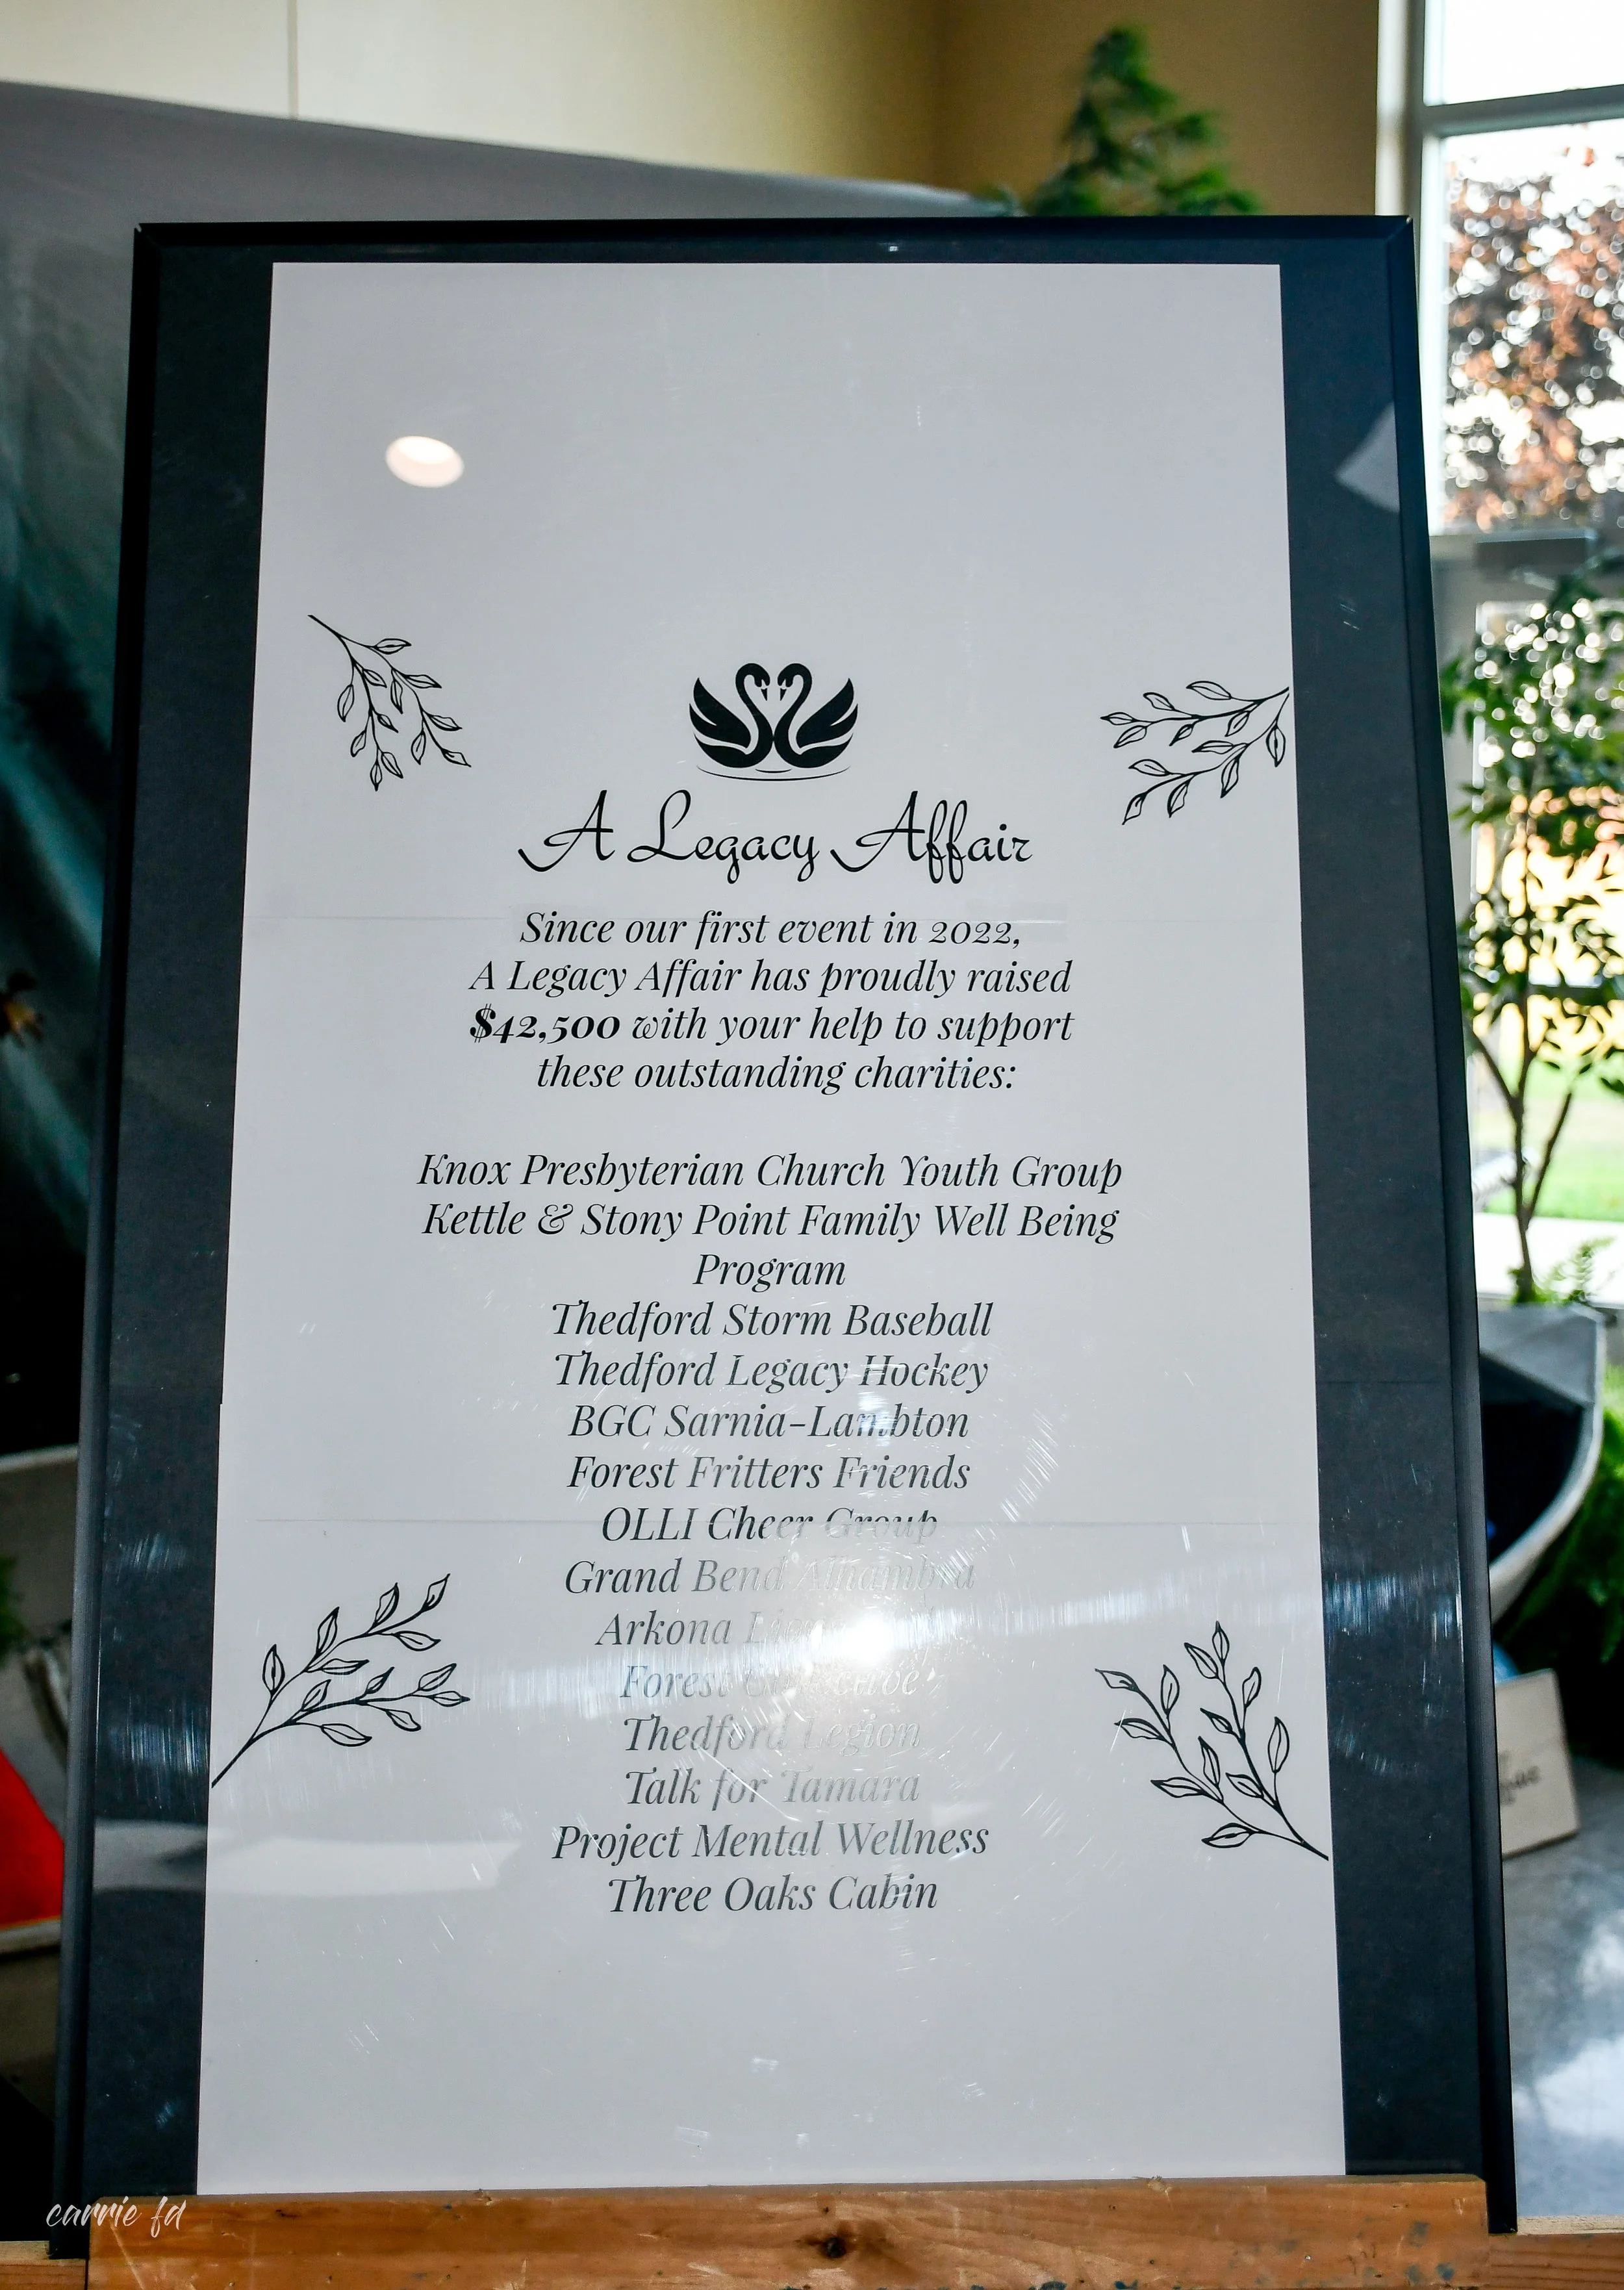 A Legacy Affair
Since our first event in 2022,
A Legacy Affair has proudly raised
$42,500 with your help to support
these outstanding charities:
Knox Presbyterian Church Youth Group
Kettle & Stony Point Family Well Being
Program
Thedford Storm Baseball
Thedford Legacy Hockey
BGC Sarnia-Lambton
Forest Fritters Friends
OLLI Cheer Group
Grand Bend Alhambra
Arkona
Forest
Thedford Legion
Talk for Tamara
Project Mental Wellness
Three Oaks Cabin
carrie fd